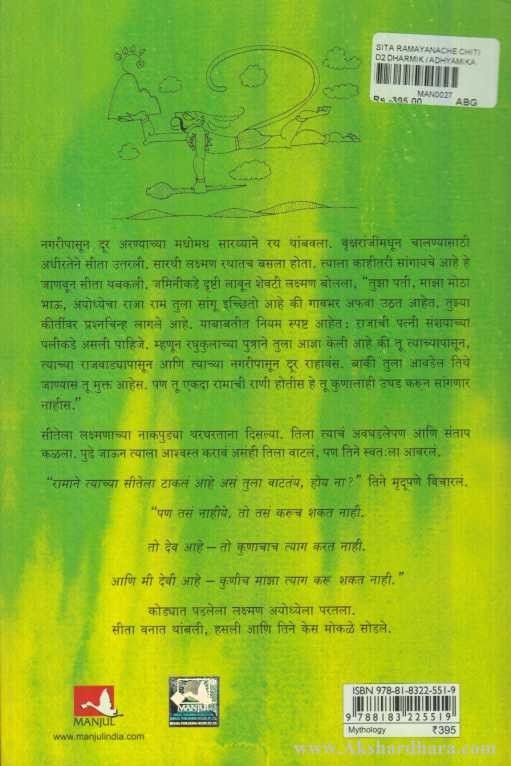 SITA RAMAYANACHE CHITI
D2 DHARMIK / ADHYAMIKA
MAN0027
Rs.-395.00 ABG
नगरीपासून दूर अरण्याच्या मधोमध सारथ्याने रथ थांबवला. वृक्षराजींमधून चालण्यासाठी
अधीरतेने सीता उतरली. सारथी लक्ष्मण रथातच बसला होता. त्याला काहीतरी सांगायचे आहे हे
जाणवून सीता थबकली. जमिनीकडे दृष्टी लावून शेवटी लक्ष्मण बोलला, “तुझा पती, माझा मोठा
भाऊ, अयोध्येचा राजा राम तुला सांगू इच्छितो आहे की गावभर अफवा उठत आहेत. तुझ्या
कीर्तीवर प्रश्नचिन्ह लागले आहे. याबाबतीत नियम स्पष्ट आहेत : राजाची पत्नी संशयाच्या
पलीकडे असली पाहिजे. म्हणून रघुकुलाच्या पुत्राने तुला आज्ञा केली आहे की तू त्याच्यापासून,
त्याच्या राजवाड्यापासून आणि त्याच्या नगरीपासून दूर राहावंस. बाकी तुला आवडेल तिथे
जाण्यास तू मुक्त आहेस. पण तू एकदा रामाची राणी होतीस हे तू कुणालाही उघड करून सांगणार
नाहीस.”
सीतेला लक्ष्मणाच्या नाकपुड्या थरथरताना दिसल्या. तिला त्याचं अवघडलेपण आणि संताप
कळला. पुढे जाऊन त्याला आश्वस्त करावं असंही तिला वाटलं, पण तिने स्वतःला आवरलं.
“रामाने त्याच्या सीतेला टाकलं आहे असं तुला वाटतंय, होय ना?” तिने मृदूपणे विचारलं.
“पण तसं नाहीये. तो तसं करूच शकत नाही.
तो देव आहे – तो कुणाचाच त्याग करत नाही.
आणि मी देवी आहे – कुणीच माझा त्याग करू शकत नाही.”
कोड्यात पडलेला लक्ष्मण अयोध्येला परतला.
सीता वनात थांबली, हसली आणि तिने केस मोकळे सोडले.
MANJUL
www.manjulindia.com
ISBN 978-81-8322-551-9
9 788183 225519
Mythology ₹395
www.Akshardhara.com